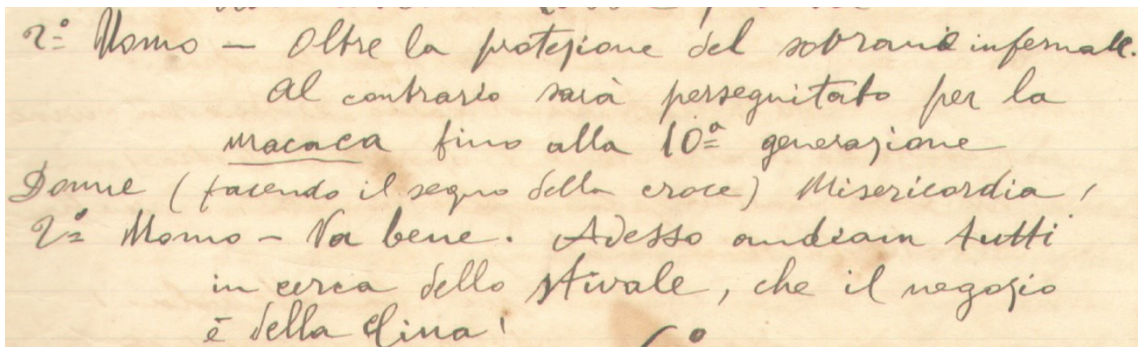 2º Uomo — Oltre la protezione del sovrano infernale.
Al contrario sarà perseguitato per la
macaca fino alla 10ª generazione
Donne (facendo il segno della croce) Misericordia!
2º Uomo — Va bene. Adesso andiam tutti
in cerca dello stivale, che il negozio
è della China!